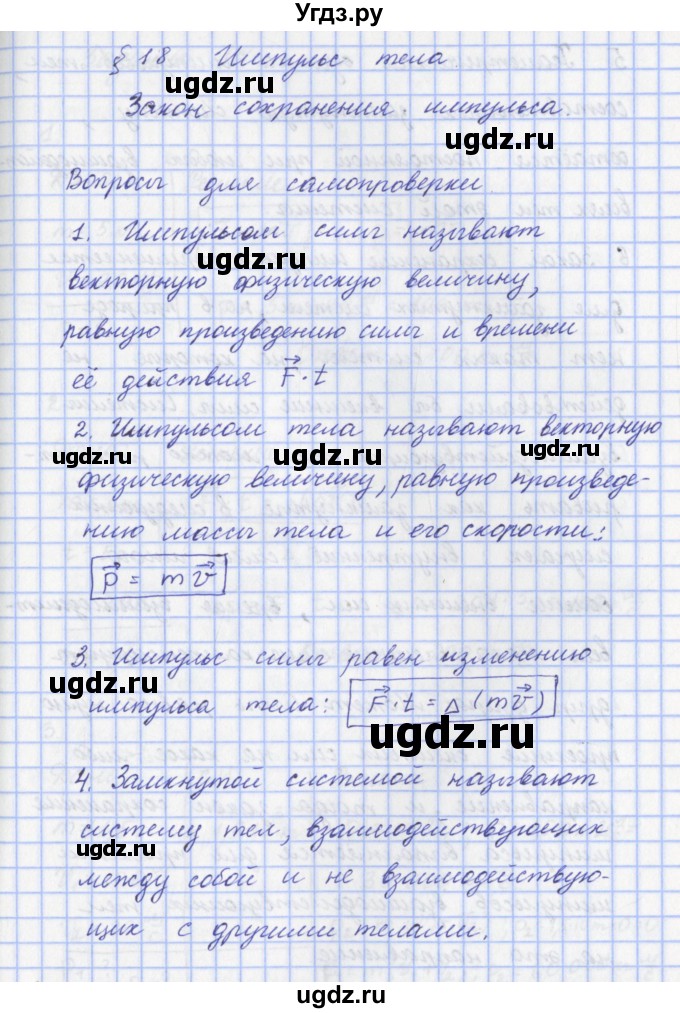 Угдз.ру
§ 18 Импульс тела
ugdz.ru
Закон сохранения импульса.
ugdz.ru
Вопросы для самопроверки.
1. Импульсом силы называют
ugdz.ru
векторную физическую величину,
равную произведению силы и времени
её действия F⃗·t
2. Импульсом тела называют векторную
ugdz.ru
ugdz.ru
физическую величину, равную произведе-
нию массы тела и его скорости:
p⃗ = mv⃗
3. Импульс силы равен изменению
ugdz.ru
импульса тела: F⃗·t = Δ(mv⃗)
ugdz.ru
4. Замкнутой системой называют
систему тел, взаимодействующих
ugdz.ru
между собой и не взаимодействую-
щих с другими телами.
ugdz.ru
ugdz.ru